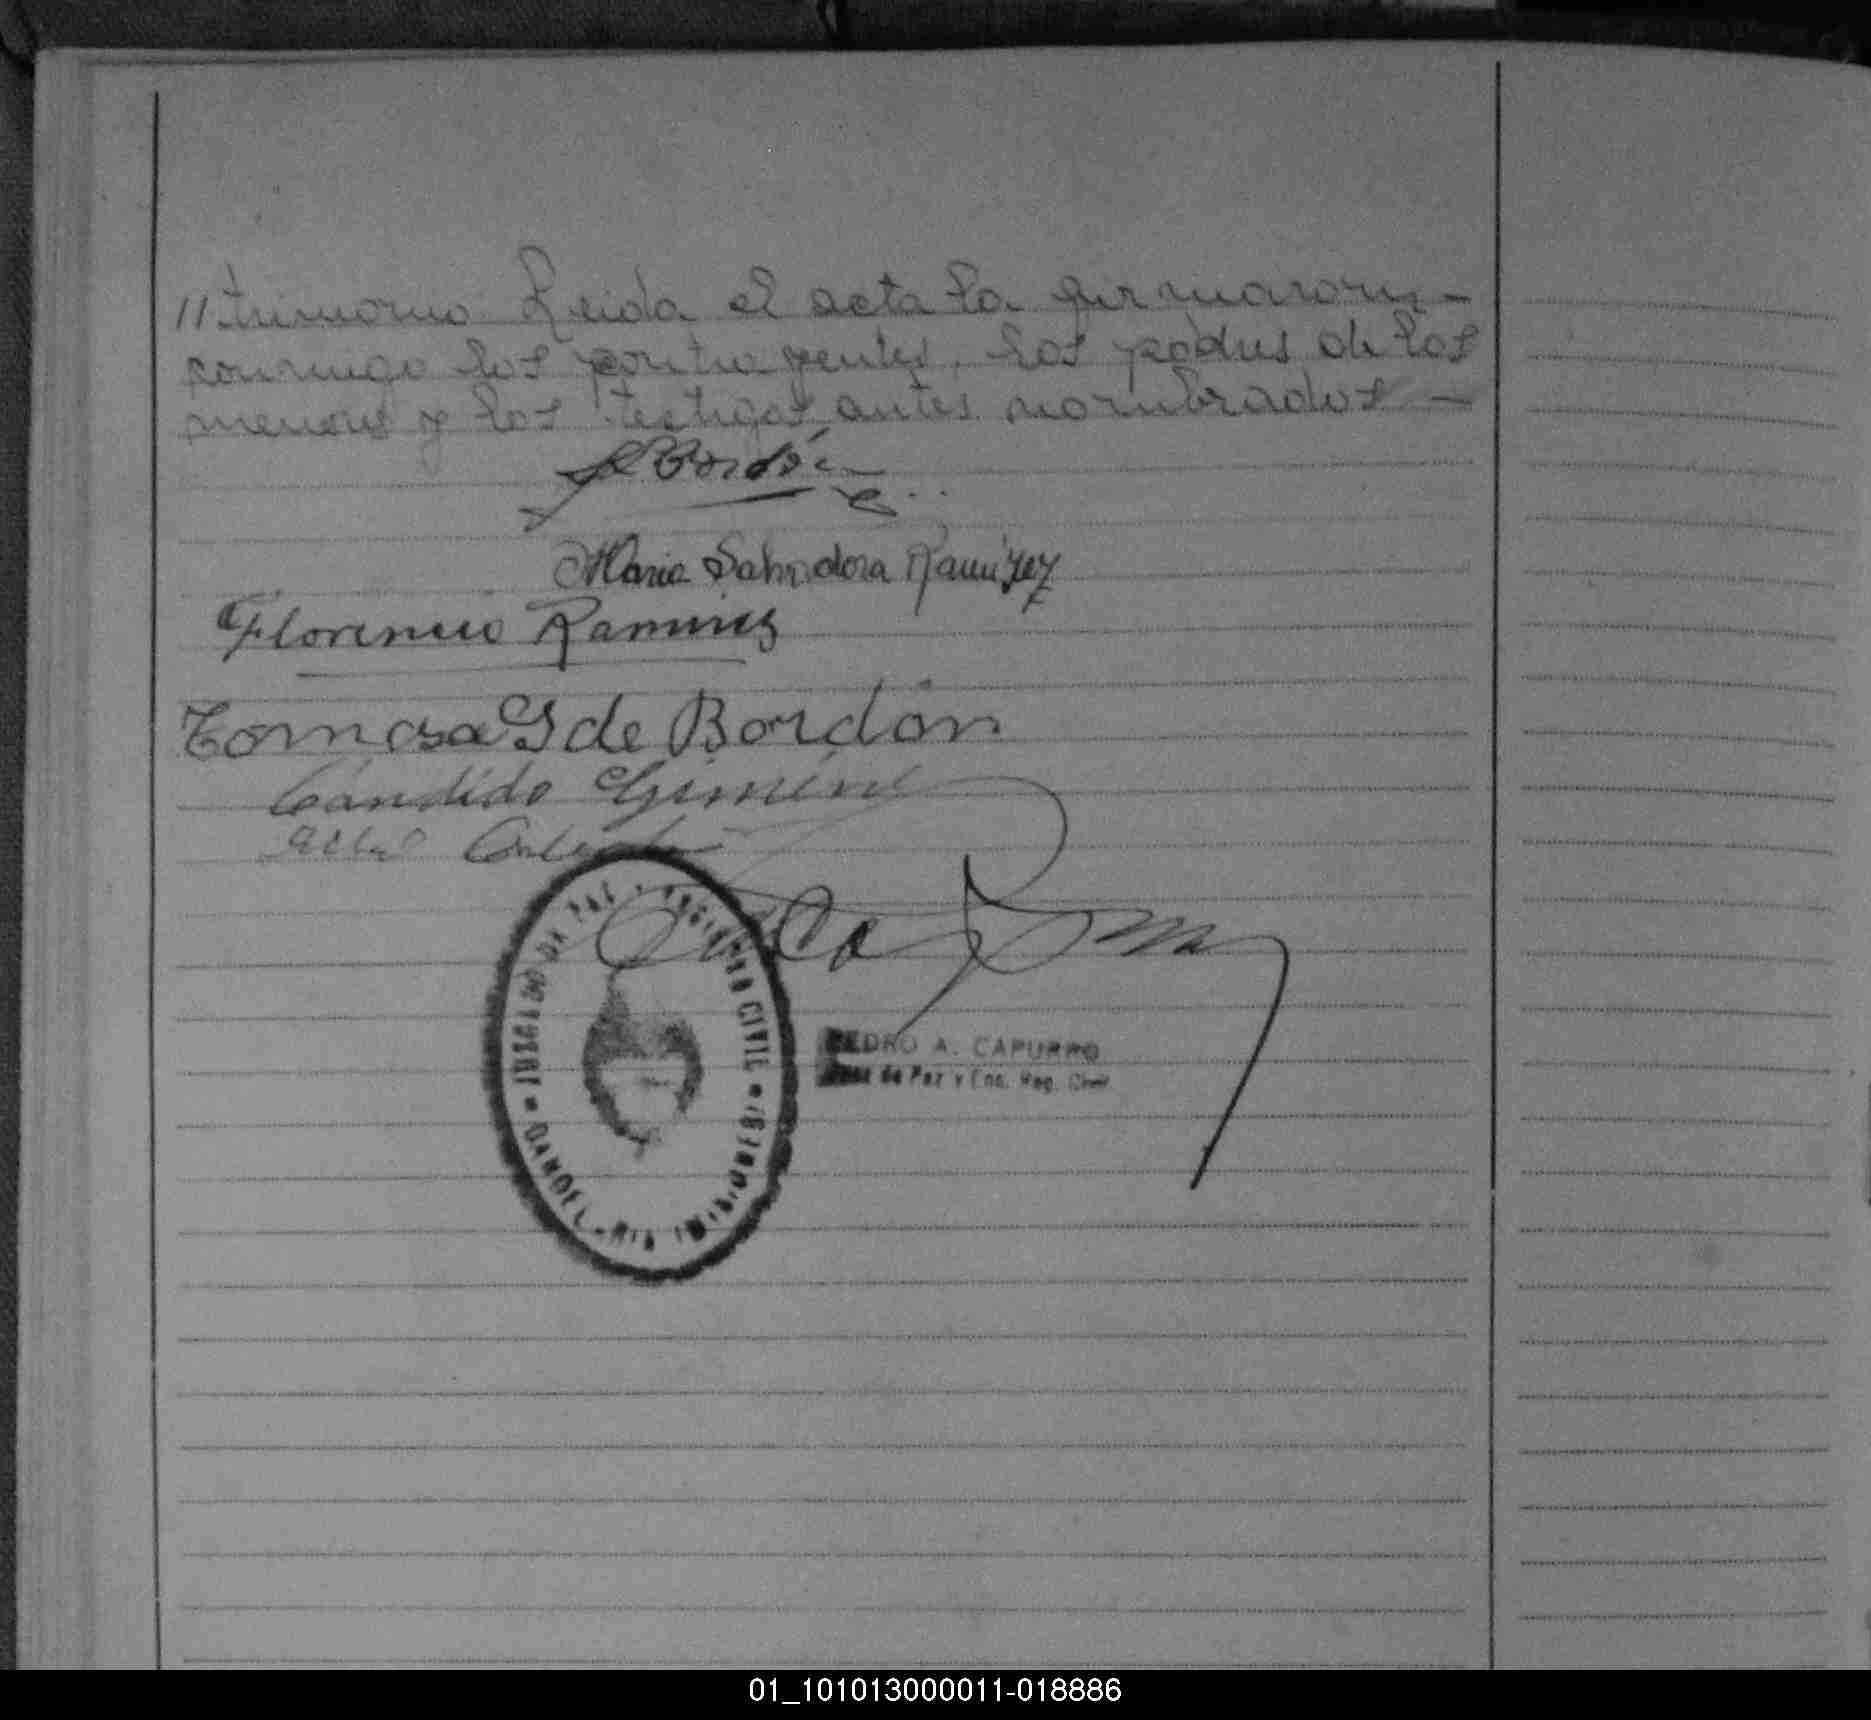 //trimonio. Leida el acta la firmaron,-
conmigo los contrayentes, los padres de los
menores y los testigos antes nombrados -
Bordón
Maria Salvadora Ramirez
Florencio Ramires
Tomasa G de Bordón
Cándido Gimenez
JUZGADO DE PAZ · REGISTRO CIVIL
PEDRO A. CAPURRO
Juez de Paz y Enc. Reg. Civil
01_101013000011-018886